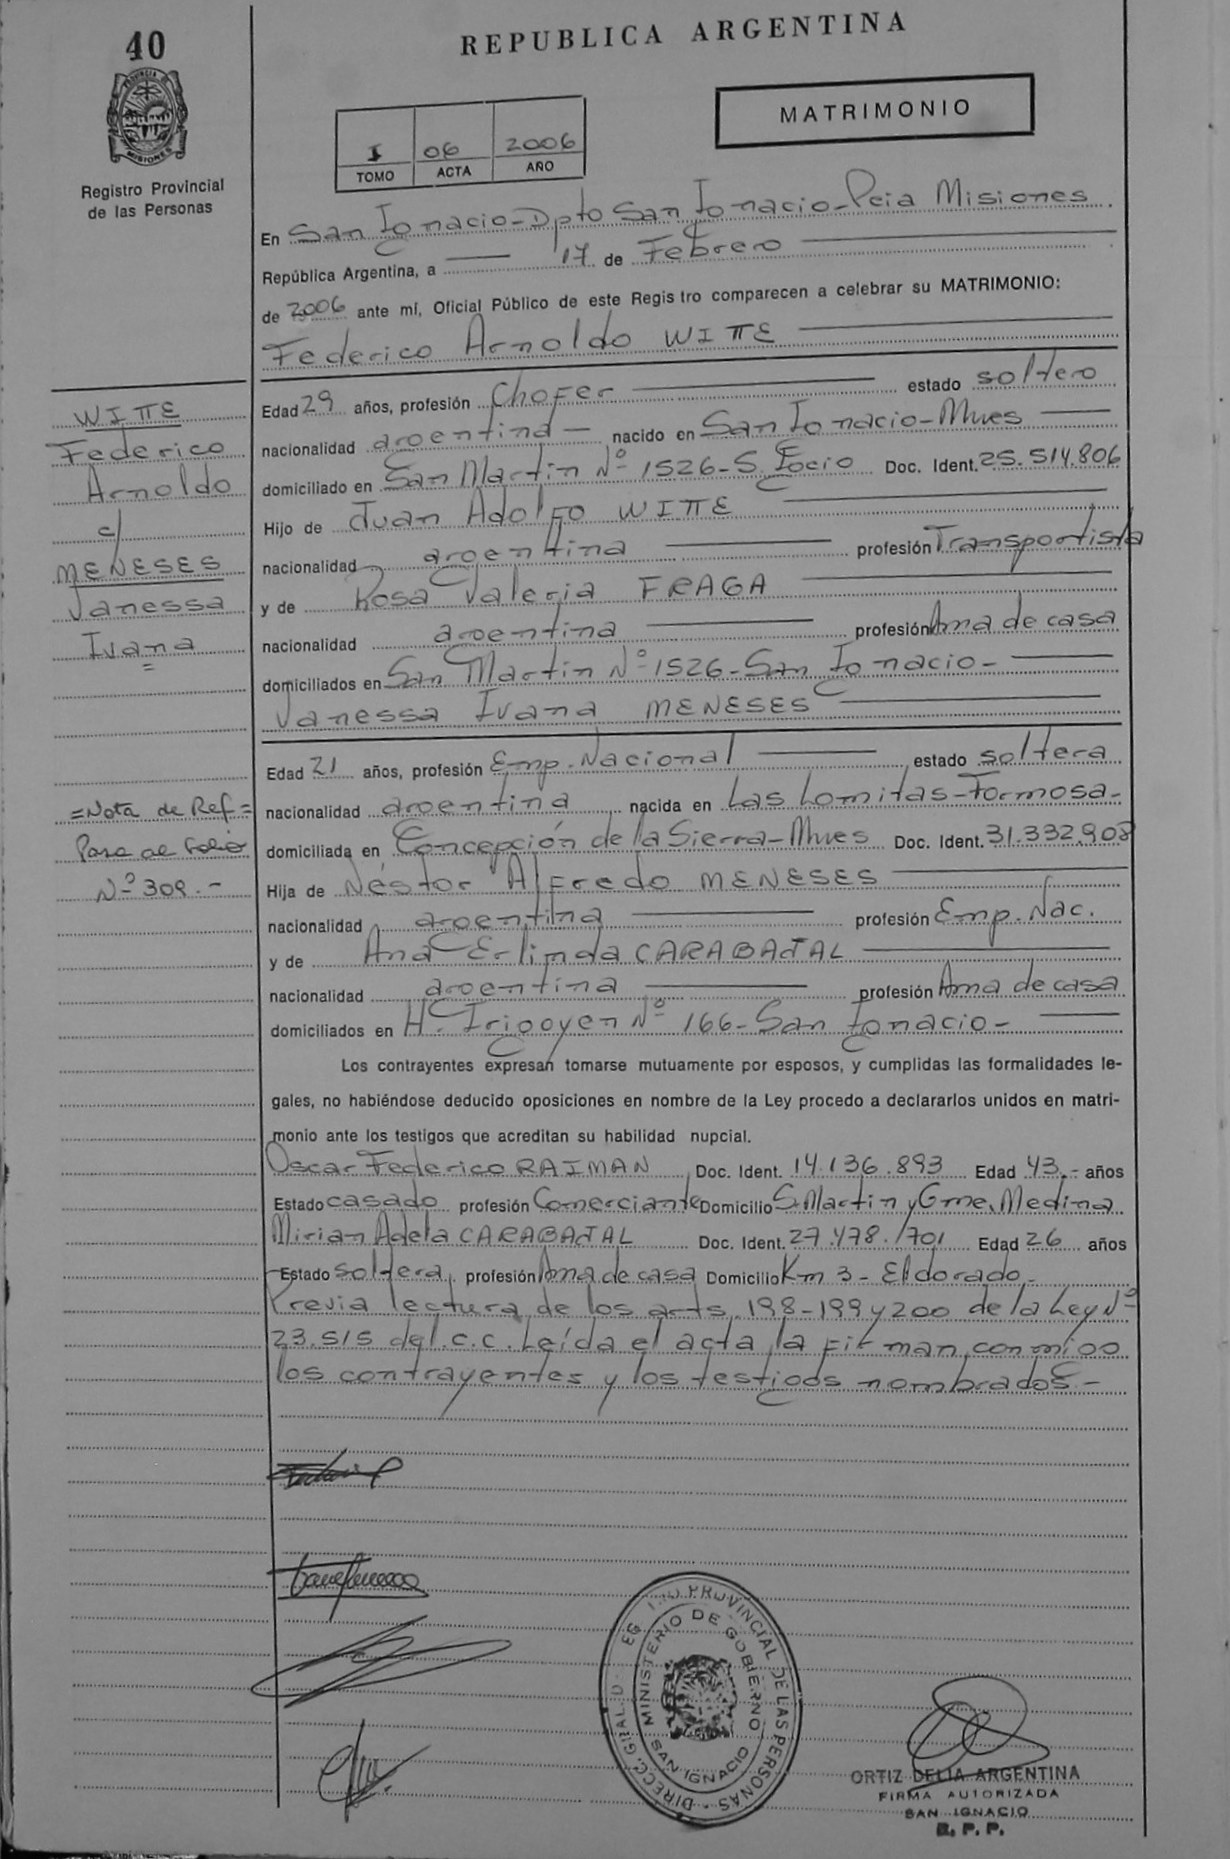 40
REPUBLICA ARGENTINA
MATRIMONIO
PROVINCIA DE
MISIONES
Registro Provincial
de las Personas
I 06 2006
TOMO ACTA AÑO
En San Ignacio-Dpto San Ignacio-Pcia Misiones
República Argentina, a 17 de Febrero
de 2006 ante mí, Oficial Público de este Registro comparecen a celebrar su MATRIMONIO:
Federico Arnoldo WITTE
WITTE
Federico
Arnoldo
c/
MENESES
Vanessa
Ivana
Edad 29 años, profesión Chofer estado soltero
nacionalidad argentina nacido en San Ignacio-Mnes
domiciliado en San Martin Nº 1526-S. Igcio Doc. Ident. 25.514.806
Hijo de Juan Adolfo WITTE
nacionalidad argentina profesión Transportista
y de Rosa Valeria FRAGA
nacionalidad argentina profesión Ama de casa
domiciliados en San Martin Nº 1526-San Ignacio-
Vanessa Ivana MENESES
Edad 21 años, profesión Emp. Nacional estado soltera
nacionalidad argentina nacida en Las Lomitas-Formosa-
domiciliada en Concepción de la Sierra-Mnes Doc. Ident. 31.332.908
Hija de Néstor Alfredo MENESES
nacionalidad argentina profesión Emp. Nac.
y de Ana Erlinda CARABAJAL
nacionalidad argentina profesión Ama de casa
domiciliados en H. Irigoyen Nº 166-San Ignacio-
=Nota de Ref=
Pasa al Folio
Nº 309.-
Los contrayentes expresan tomarse mutuamente por esposos, y cumplidas las formalidades le-
gales, no habiéndose deducido oposiciones en nombre de la Ley procedo a declararlos unidos en matri-
monio ante los testigos que acreditan su habilidad nupcial.
Oscar Federico RAIMAN Doc. Ident. 14.136.893 Edad 43.- años
Estado casado profesión Comerciante Domicilio S.Martin y Gme. Medina
Mirian Adela CARABAJAL Doc. Ident. 27.478.701 Edad 26 años
Estado soltera profesión Ama de casa Domicilio Km 3- Eldorado.-
Previa lectura de los arts. 198-199 y 200 de la Ley Nº
23.515 del C.C. Leída el acta la firman conmigo
los contrayentes y los testigos nombrados-
PROVINCIAL DE LAS PERSONAS - DIRECC. GRAL. D
MINISTERIO DE GOBIERNO
SAN IGNACIO
ORTIZ DELIA ARGENTINA
FIRMA AUTORIZADA
SAN IGNACIO
R. P. P.